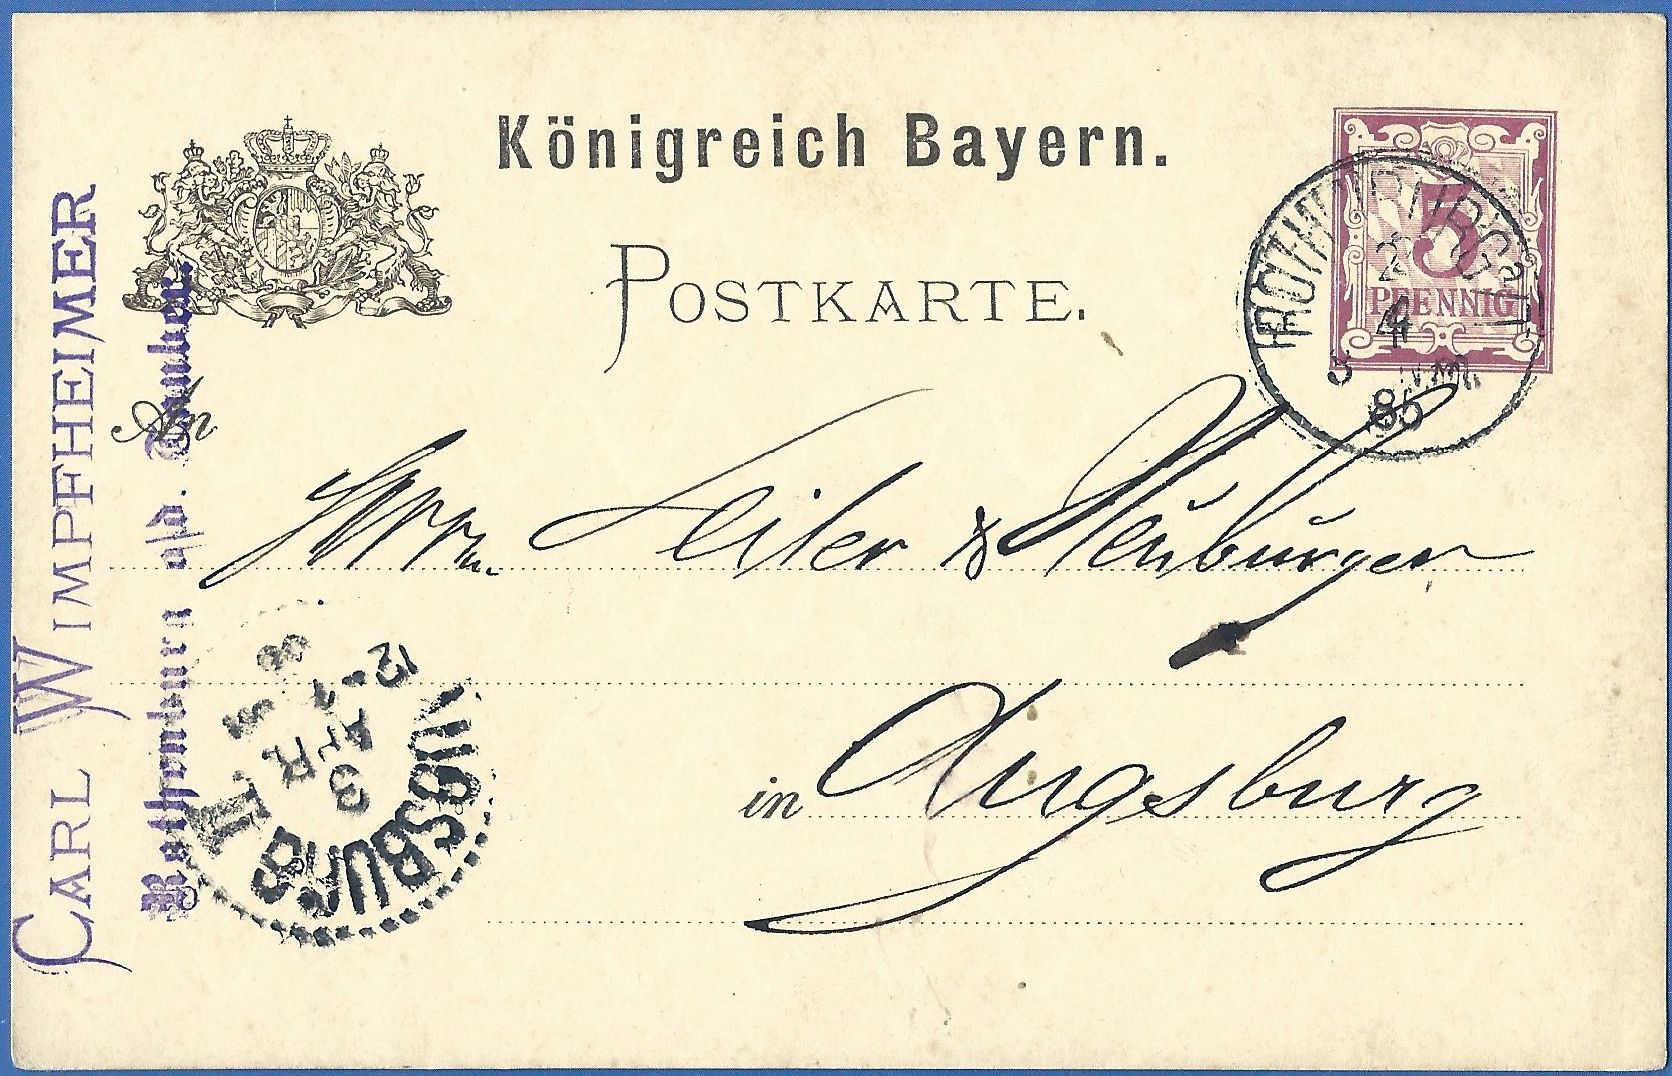 Königreich Bayern.
POSTKARTE.
5
PFENNIG
2
4
86
CARL WIMPFHEIMER
Rothenburg a/d. Tauber.
An
Herrn Leiter & Neuburger
in Augsburg
AUGSBURG
12-1
3
APR
II